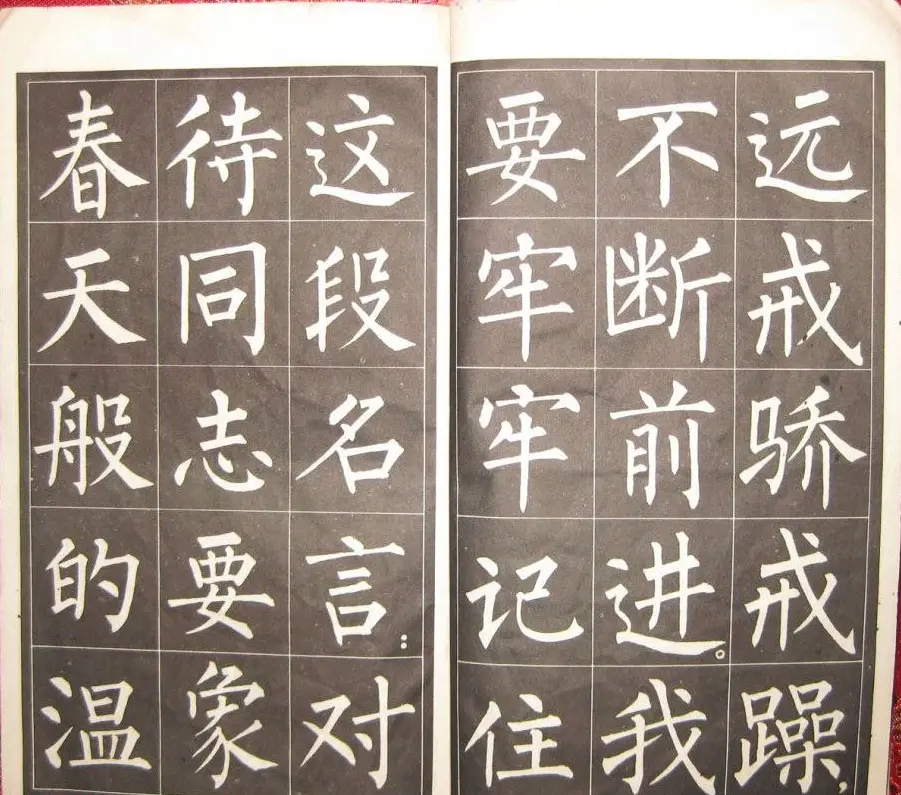 远戒骄戒躁,
不断前进。我
要牢牢记住
这段名言:对
待同志要象
春天般的温